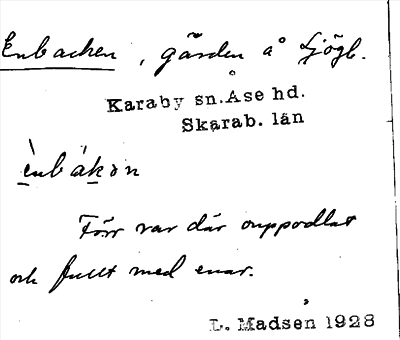 Enbacken, gärden å Sjögb.
Karaby sn. Åse hd.
Skarab. län
ènbákən
Förr var där ouppodlat
och fullt med enar.
L. Madsen 1928